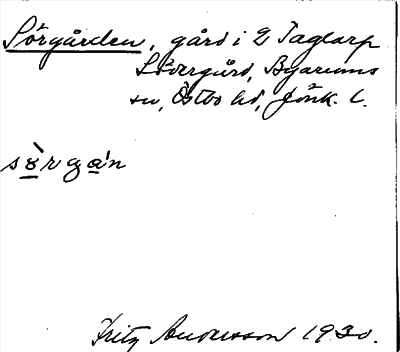 Sörgården, gård i 2 Taglarp
Sörgård, Byarums
sn, Östbo hd, Jönk. l.
sö̀rgɑ́n
Fritz Andersson 1930.